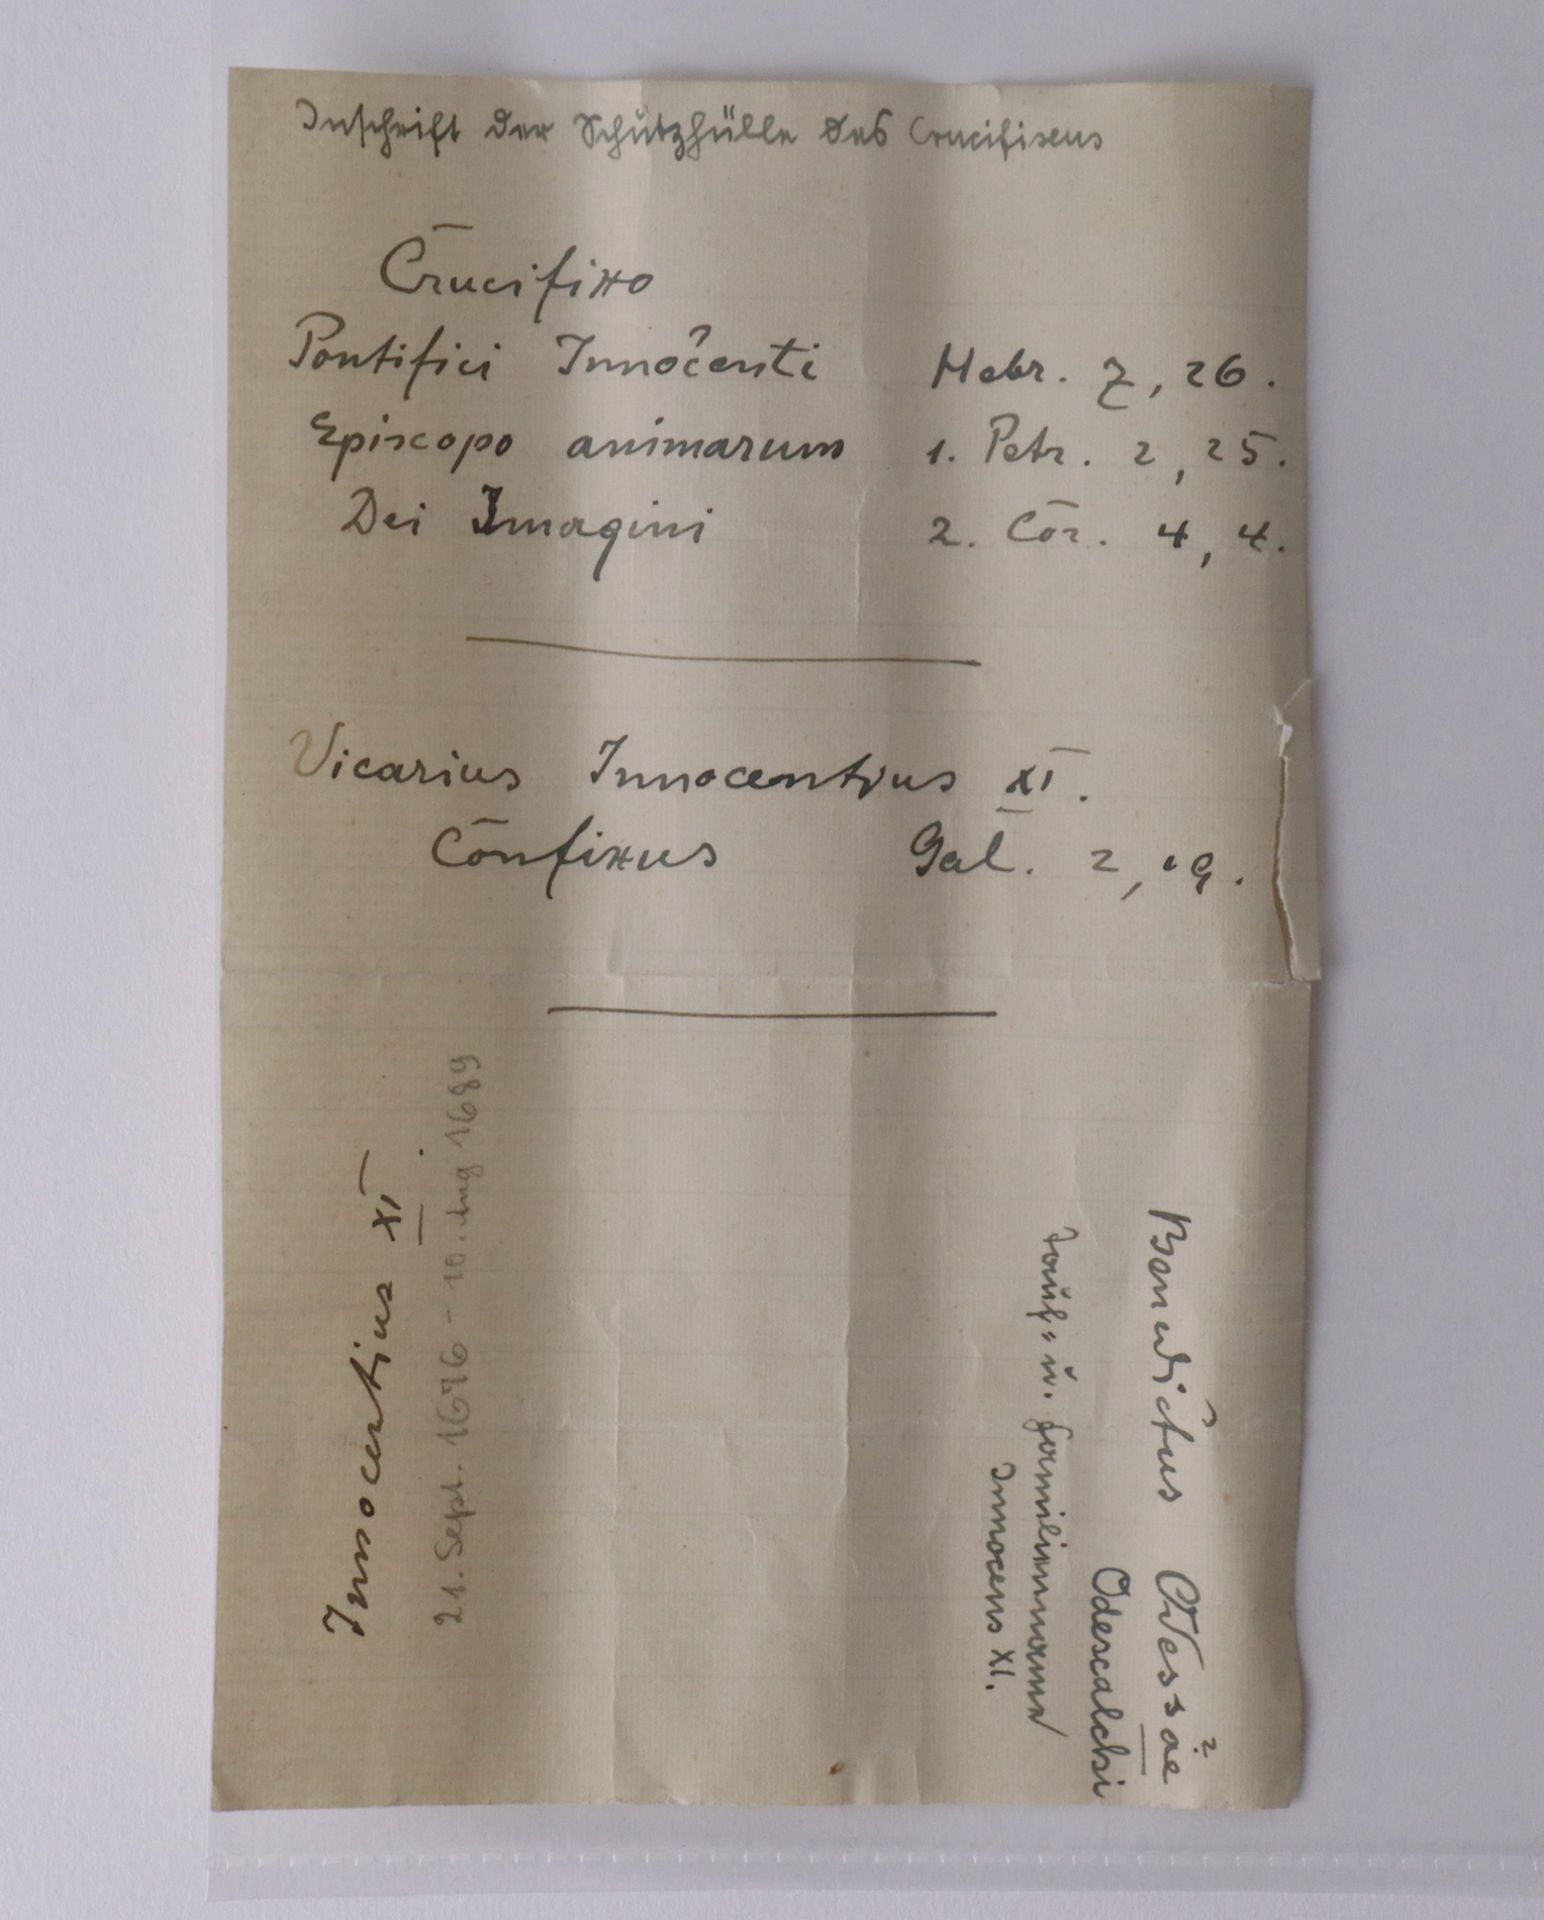 Inschrift der Schutzhülle des Crucifixus
Crucifixo
Pontifici Innocenti Hebr. 7, 26.
Episcopo animarum 1. Petr. 2, 25.
Dei Imagini 2. Cor. 4, 4.
Vicarius Innocentius XI.
Confixus Gal. 2, 19.
Innocentius XI.
21. Sept. 1676 - 10. Aug 1689
Benedictus Odessae ?
Odescalchi
Tauf- u. Familienname
Innocens XI.